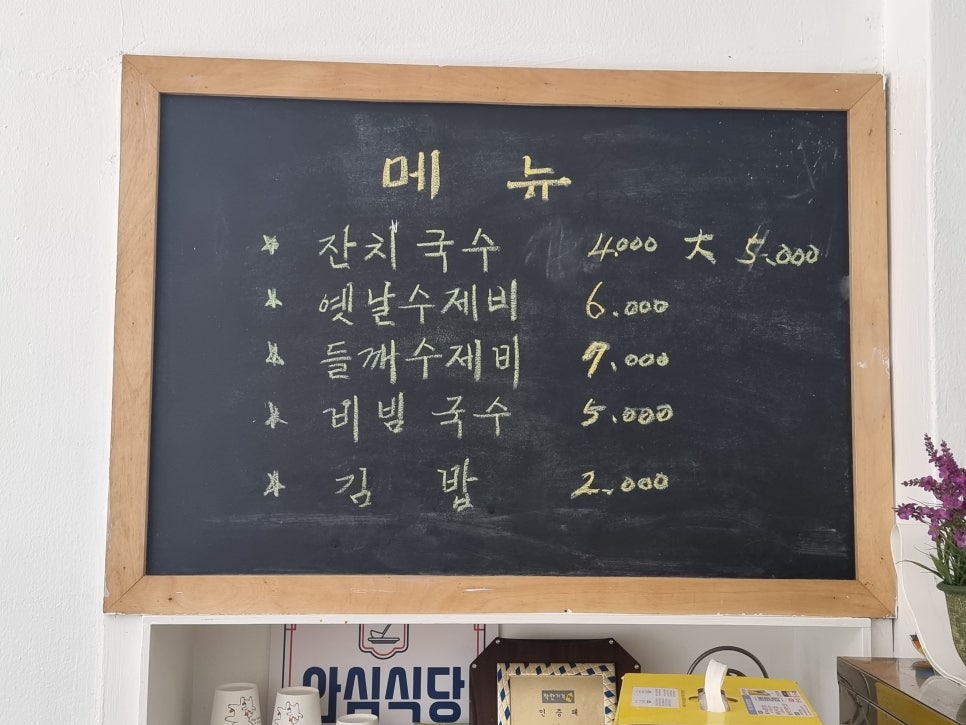 메 뉴
* 잔치국수 4.000 大 5.000
* 옛날수제비 6.000
* 들깨수제비 7.000
* 비빔국수 5.000
* 김 밥 2.000
안심식당
착한가격
인증패